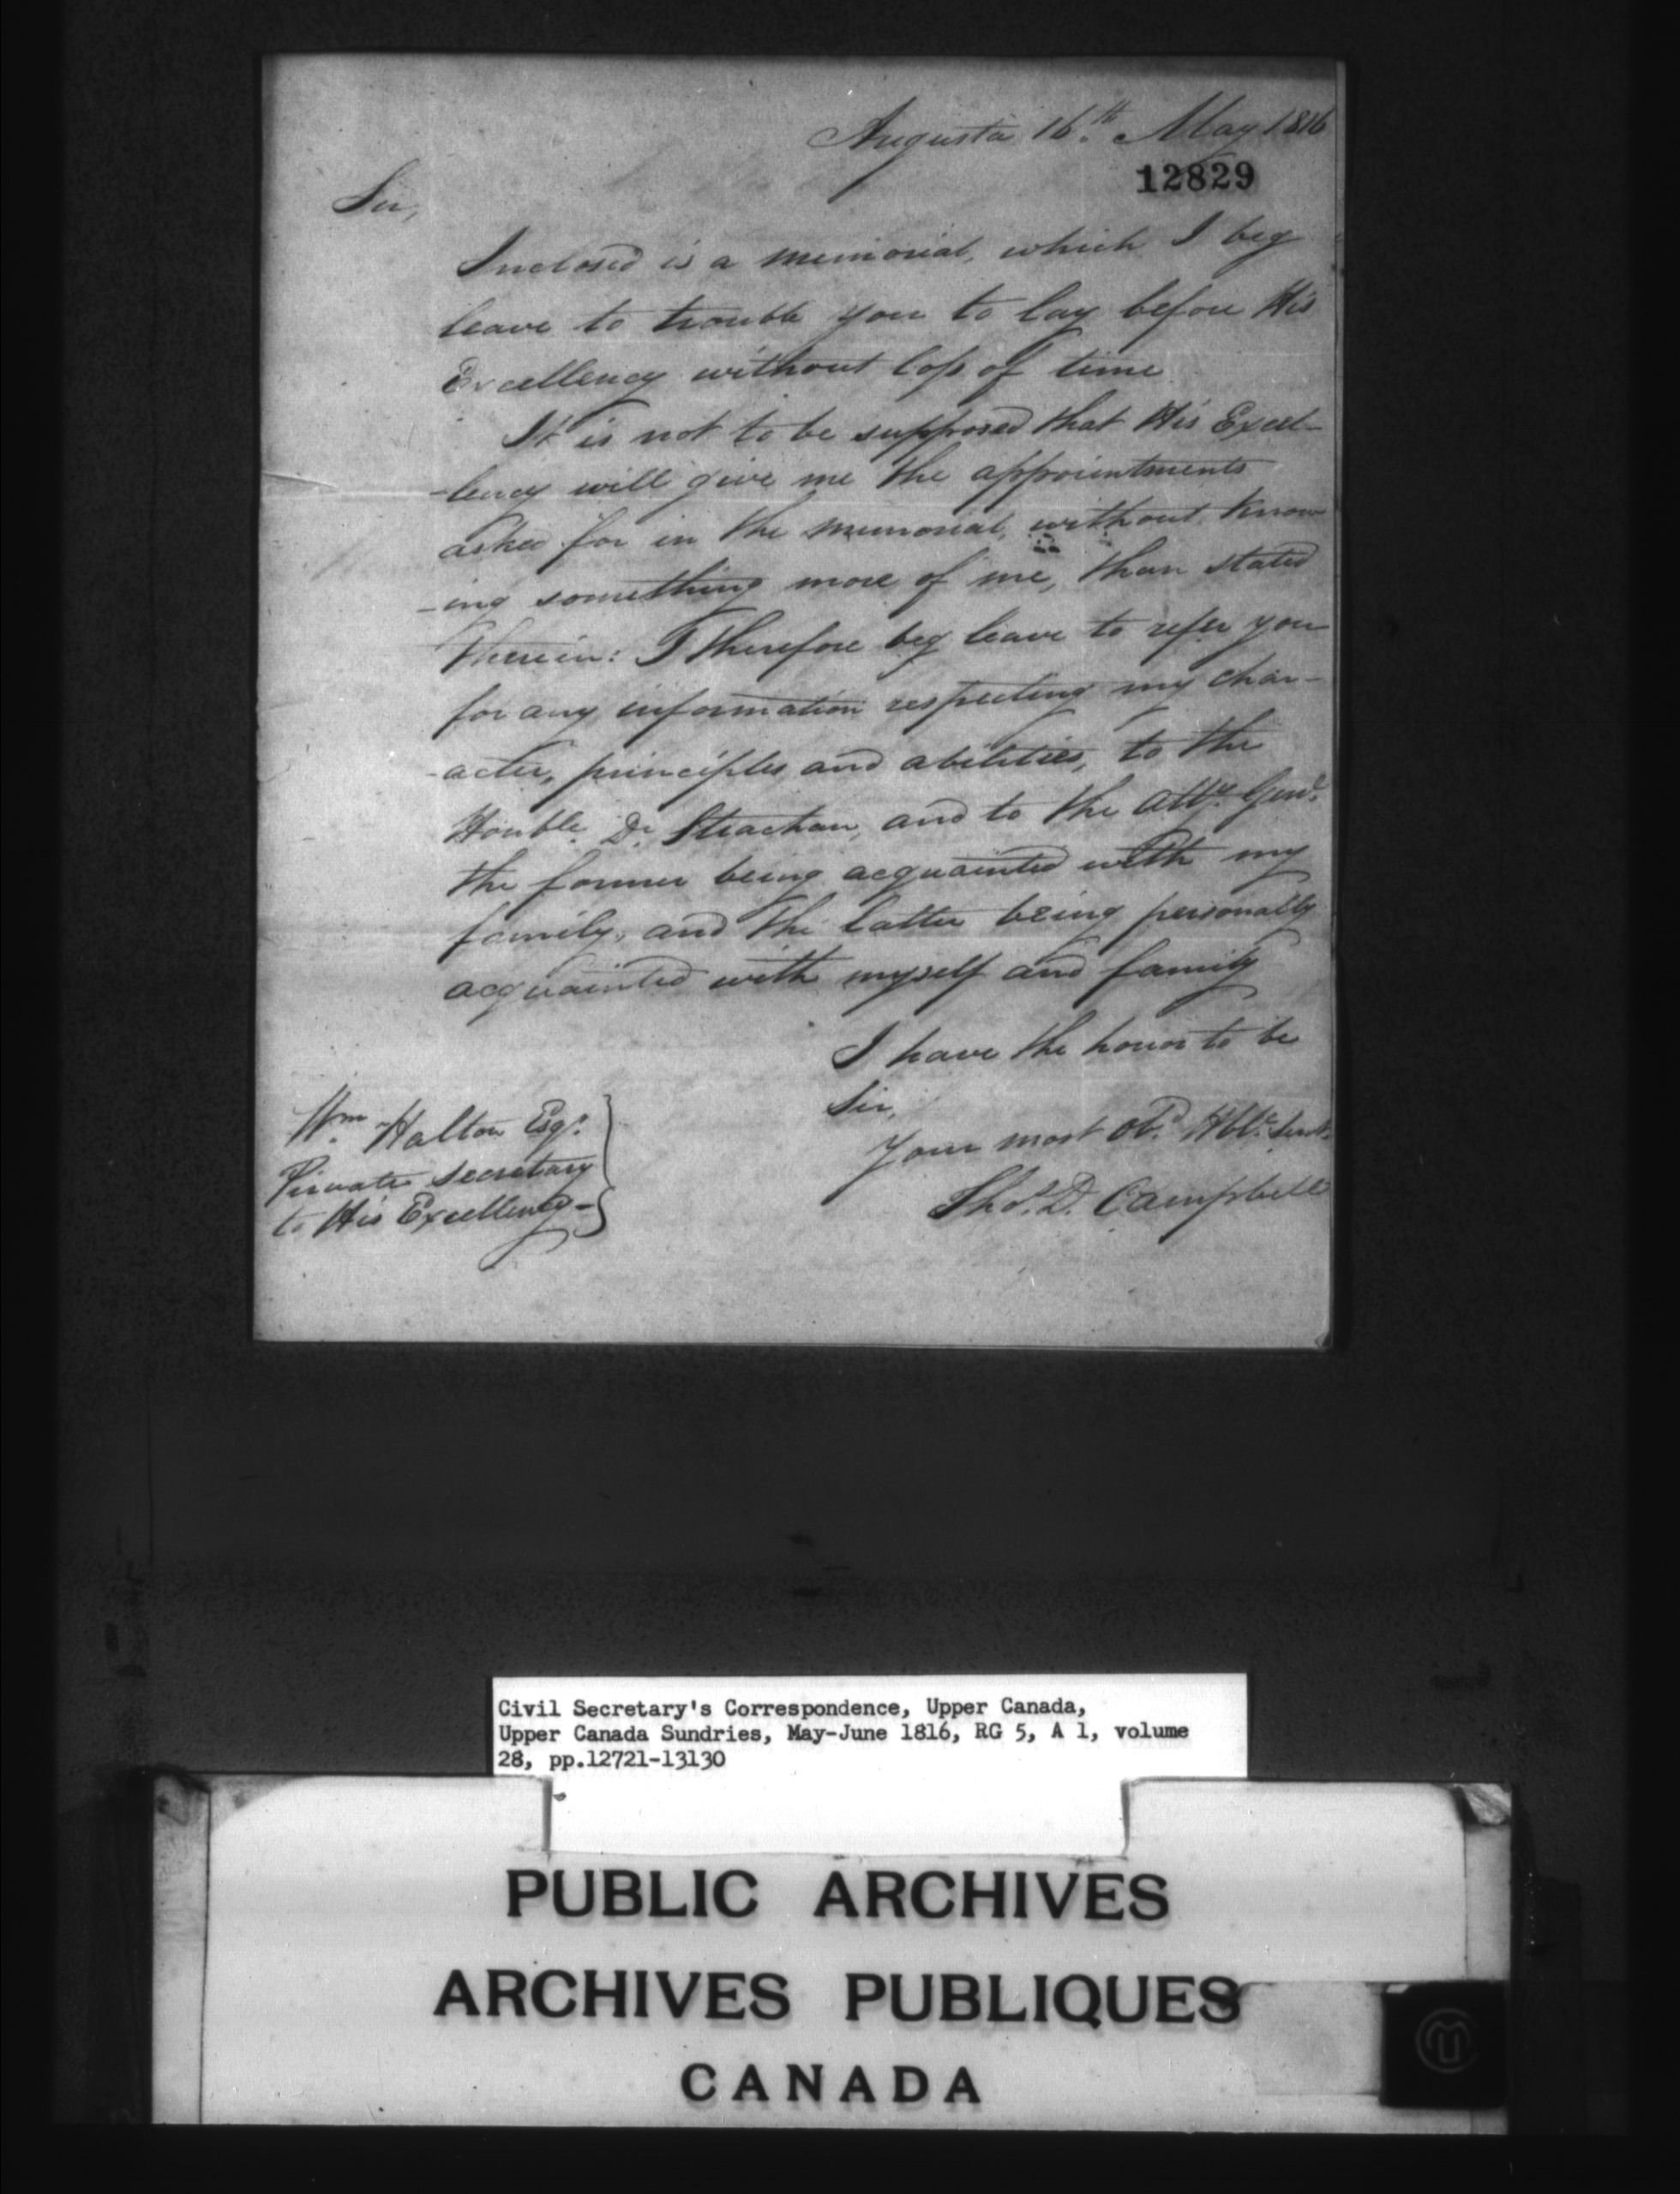 Augusta 16.th May 1816
12829
Sir,
Inclosed is a memorial, which I beg
leave to trouble you to lay before His
Excellency without loss of time
It is not to be supposed that His Excel-
-lency will give me the appointments
asked for in the memorial, without know
-ing something more of me, than stated
therein: I therefore beg leave to refer you
for any information respecting my char-
-acter, principles, and abilities, to the
Honble. Dr. Strachan, and to the Atty. Genl.
the former being acquainted with my
family, and the latter being personally
acquainted with myself and family
I have the honor to be
Sir,
Your most Obt. Hble. Servt.
Thos. D. Campbell
Wm. Halton Esqr.
Private Secretary
to His Excellency-
Civil Secretary's Correspondence, Upper Canada,
Upper Canada Sundries, May-June 1816, RG 5, A 1, volume
28, pp.12721-13130
PUBLIC ARCHIVES
ARCHIVES PUBLIQUES
CANADA